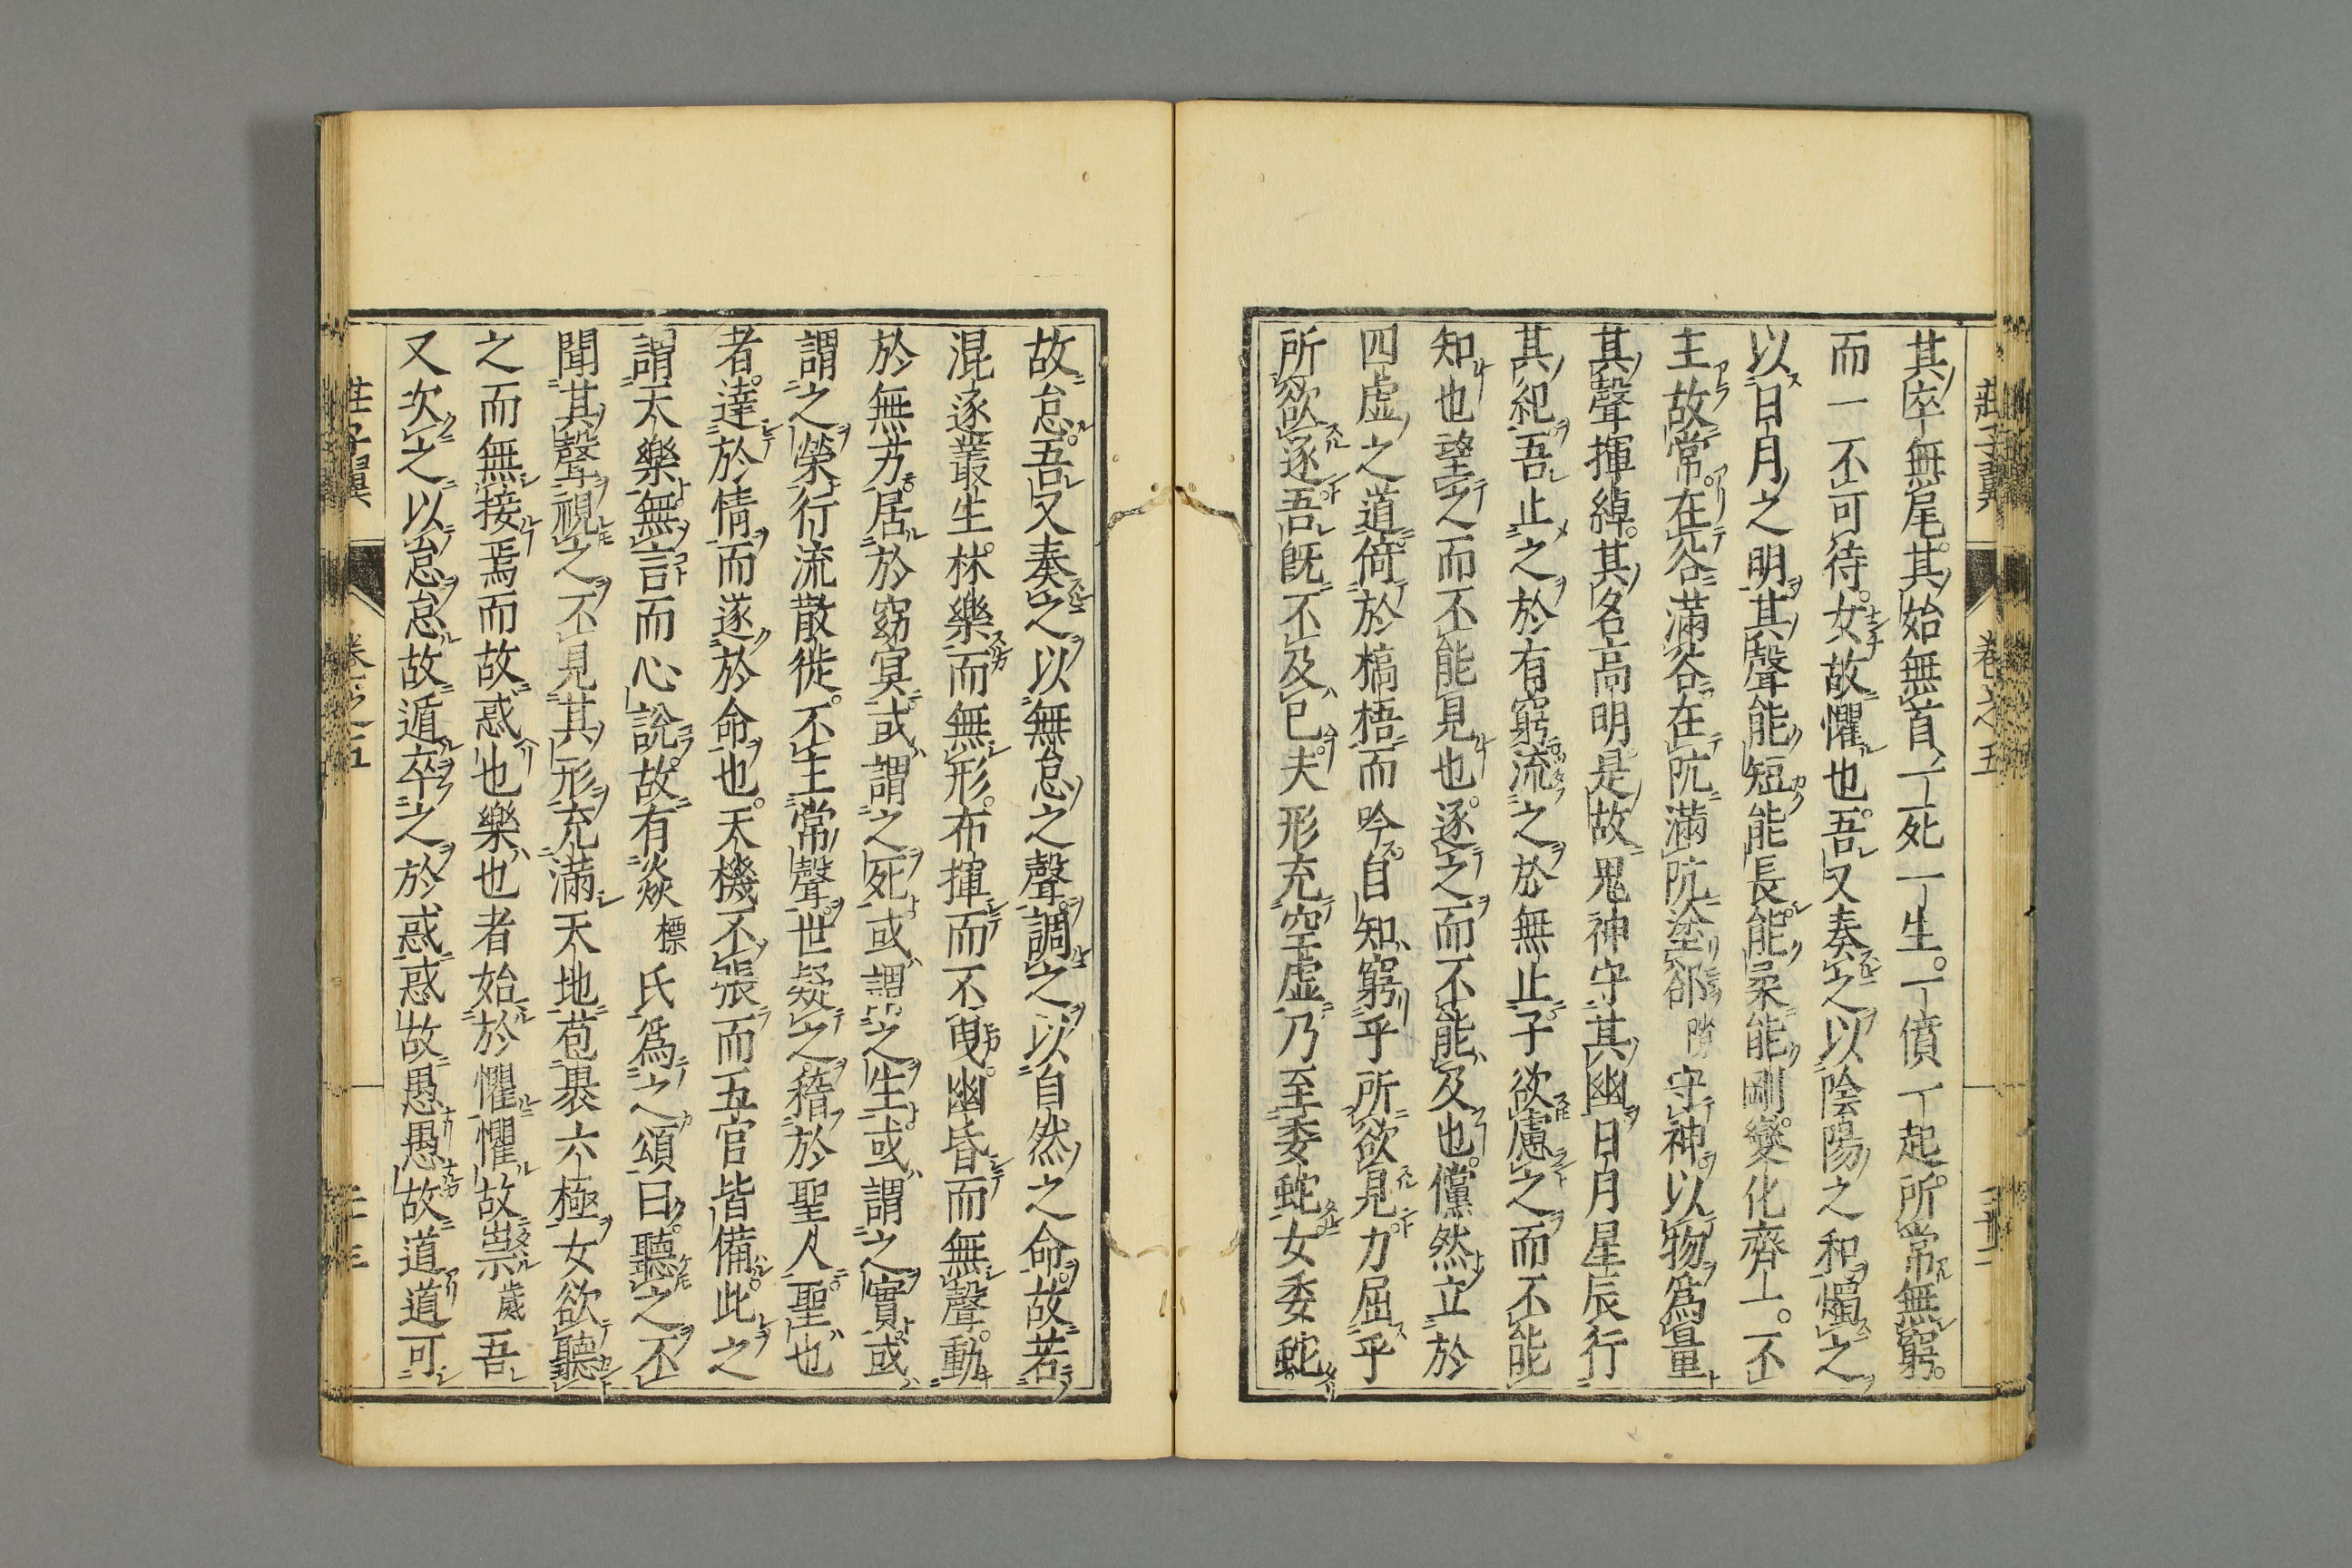 莊子翼 卷之五
其卒無尾其始無首一死一生一僨一起所常無窮
而一不可待女故懼也吾又奏之以陰陽之和燭之
以日月之明其聲能短能長能柔能剛變化齊一不
主故常在谷滿谷在阬滿阬塗郤隙守神以物爲量
其聲揮綽其名高明是故鬼神守其幽日月星辰行
其紀吾止之於有窮流之於無止子欲慮之而不能
知也望之而不能見也逐之而不能及也儻然立於
四虛之道倚於槁梧而吟自知窮乎所欲見力屈乎
所欲逐吾既不及已夫形充空虛乃至委蛇女委蛇
故怠吾又奏之以無怠之聲調之以自然之命故若
混逐叢生林樂而無形布揮而不曳幽昏而無聲動
於無方居於窈冥或謂之死或謂之生或謂之實或
謂之榮行流散徙不主常聲世疑之稽於聖人聖也
者達於情而遂於命也天機不張而五官皆備此之
謂天樂無言而心說故有焱標氏爲之頌曰聽之不
聞其聲視之不見其形充滿天地苞裹六極女欲聽
之而無接焉而故惑也樂也者始於懼懼故祟歲吾
又次之以怠怠故遁卒之於惑惑故愚愚故道道可
莊子翼 卷之五